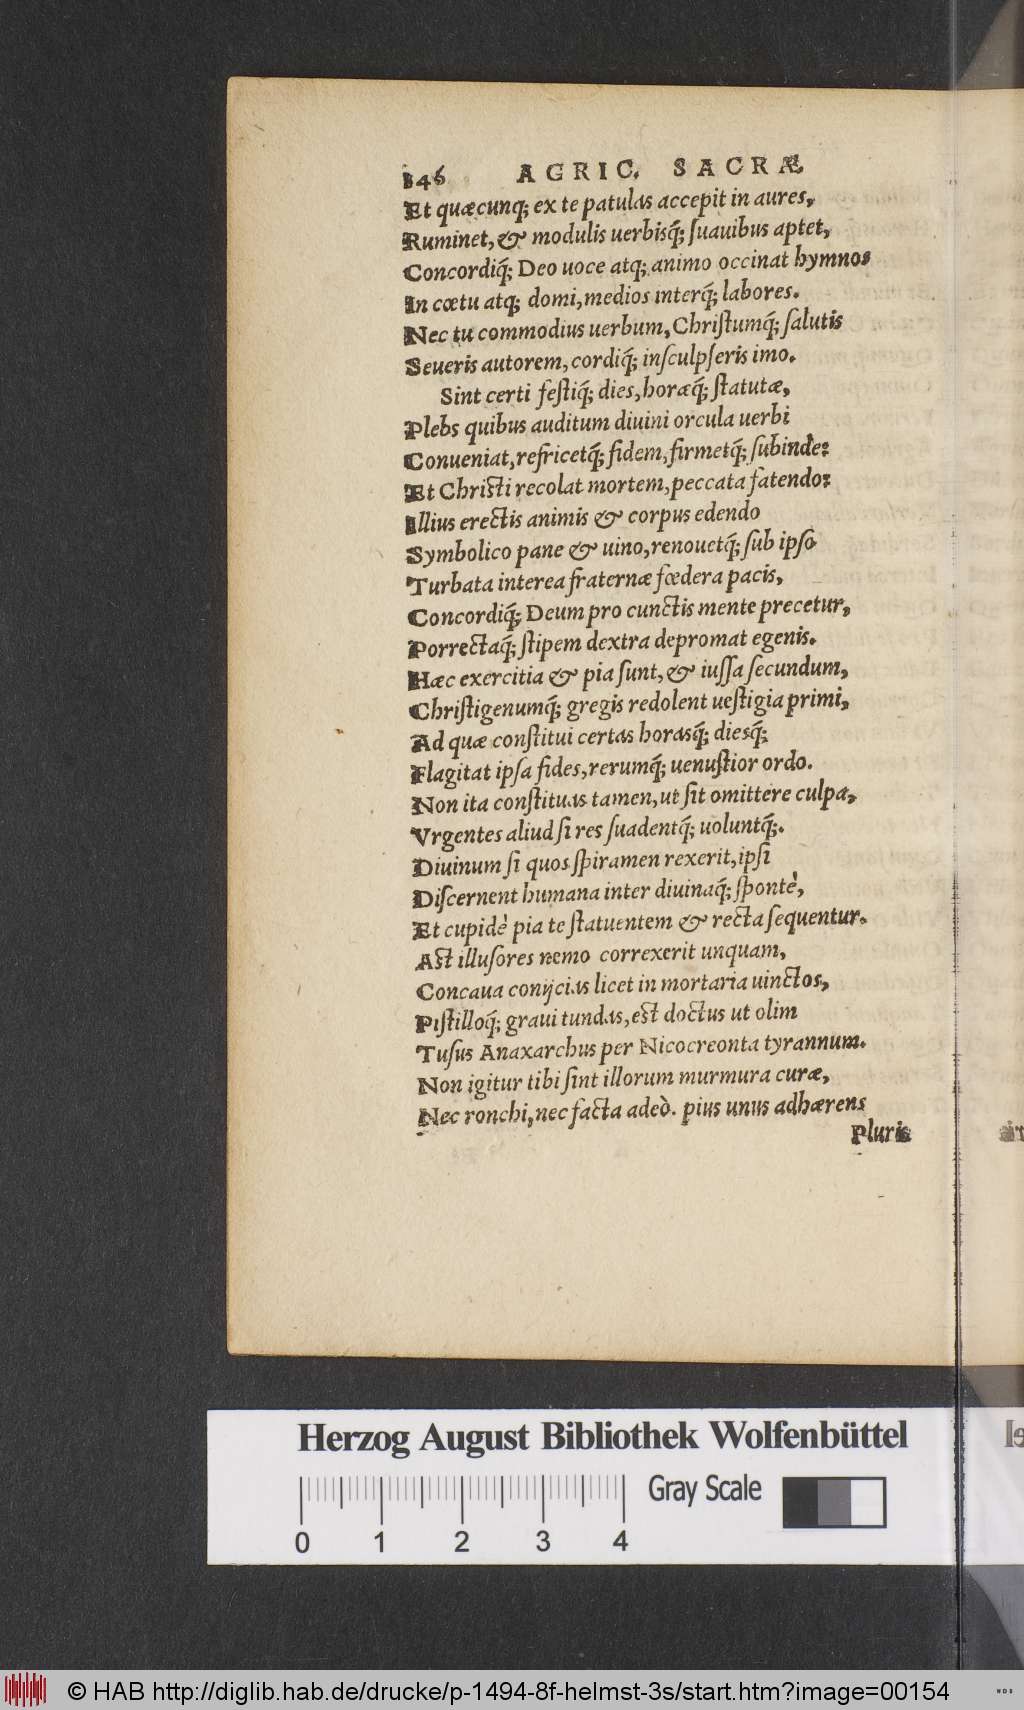 146 AGRIC. SACRÆ
Et quæcunq; ex te patulas accepit in aures,
Ruminet, & modulis uerbisq́; ſuauibus aptet,
Concordiq́; Deo uoce atq; animo occinat hymnos
In cœtu atq; domi, medios interq́; labores.
Nec tu commodius uerbum, Chriſtumq́; ſalutis
Seueris autorem, cordiq́; inſculpſeris imo.
Sint certi feſtiq́; dies, horæq́; ſtatutæ,
Plebs quibus auditum diuini orcula uerbi
Conueniat, refricetq́; fidem, firmetq́; ſubinde:
Et Chriſti recolat mortem, peccata fatendo:
Illius erectis animis & corpus edendo
Symbolico pane & uino, renouetq́; ſub ipſo
Turbata interea fraternæ fœdera pacis,
Concordiq́; Deum pro cunctis mente precetur,
Porrectaq́; ſtipem dextra depromat egenis.
Hæc exercitia & pia ſunt, & iuſſa ſecundum,
Chriſtigenumq́; gregis redolent ueſtigia primi,
Ad quæ conſtitui certas horasq́; diesq́;
Flagitat ipſa fides, rerumq́; uenuſtior ordo.
Non ita conſtituas tamen, ut ſit omittere culpa,
Vrgentes aliud ſi res ſuadentq́; uoluntq́;.
Diuinum ſi quos ſpiramen rexerit, ipſi
Diſcernent humana inter diuinaq́; ſpontè,
Et cupidè pia te ſtatuentem & recta ſequentur.
Aſt illuſores nemo correxerit unquam,
Concaua conijcias licet in mortaria uinctos,
Piſtilloq́; graui tundas, eſt doctus ut olim
Tuſus Anaxarchus per Nicocreonta tyrannum.
Non igitur tibi ſint illorum murmura curæ,
Nec ronchi, nec facta adeò. pius unus adhærens
Pluris
Herzog August Bibliothek Wolfenbüttel
Gray Scale
0 1 2 3 4
© HAB http://diglib.hab.de/drucke/p-1494-8f-helmst-3s/start.htm?image=00154